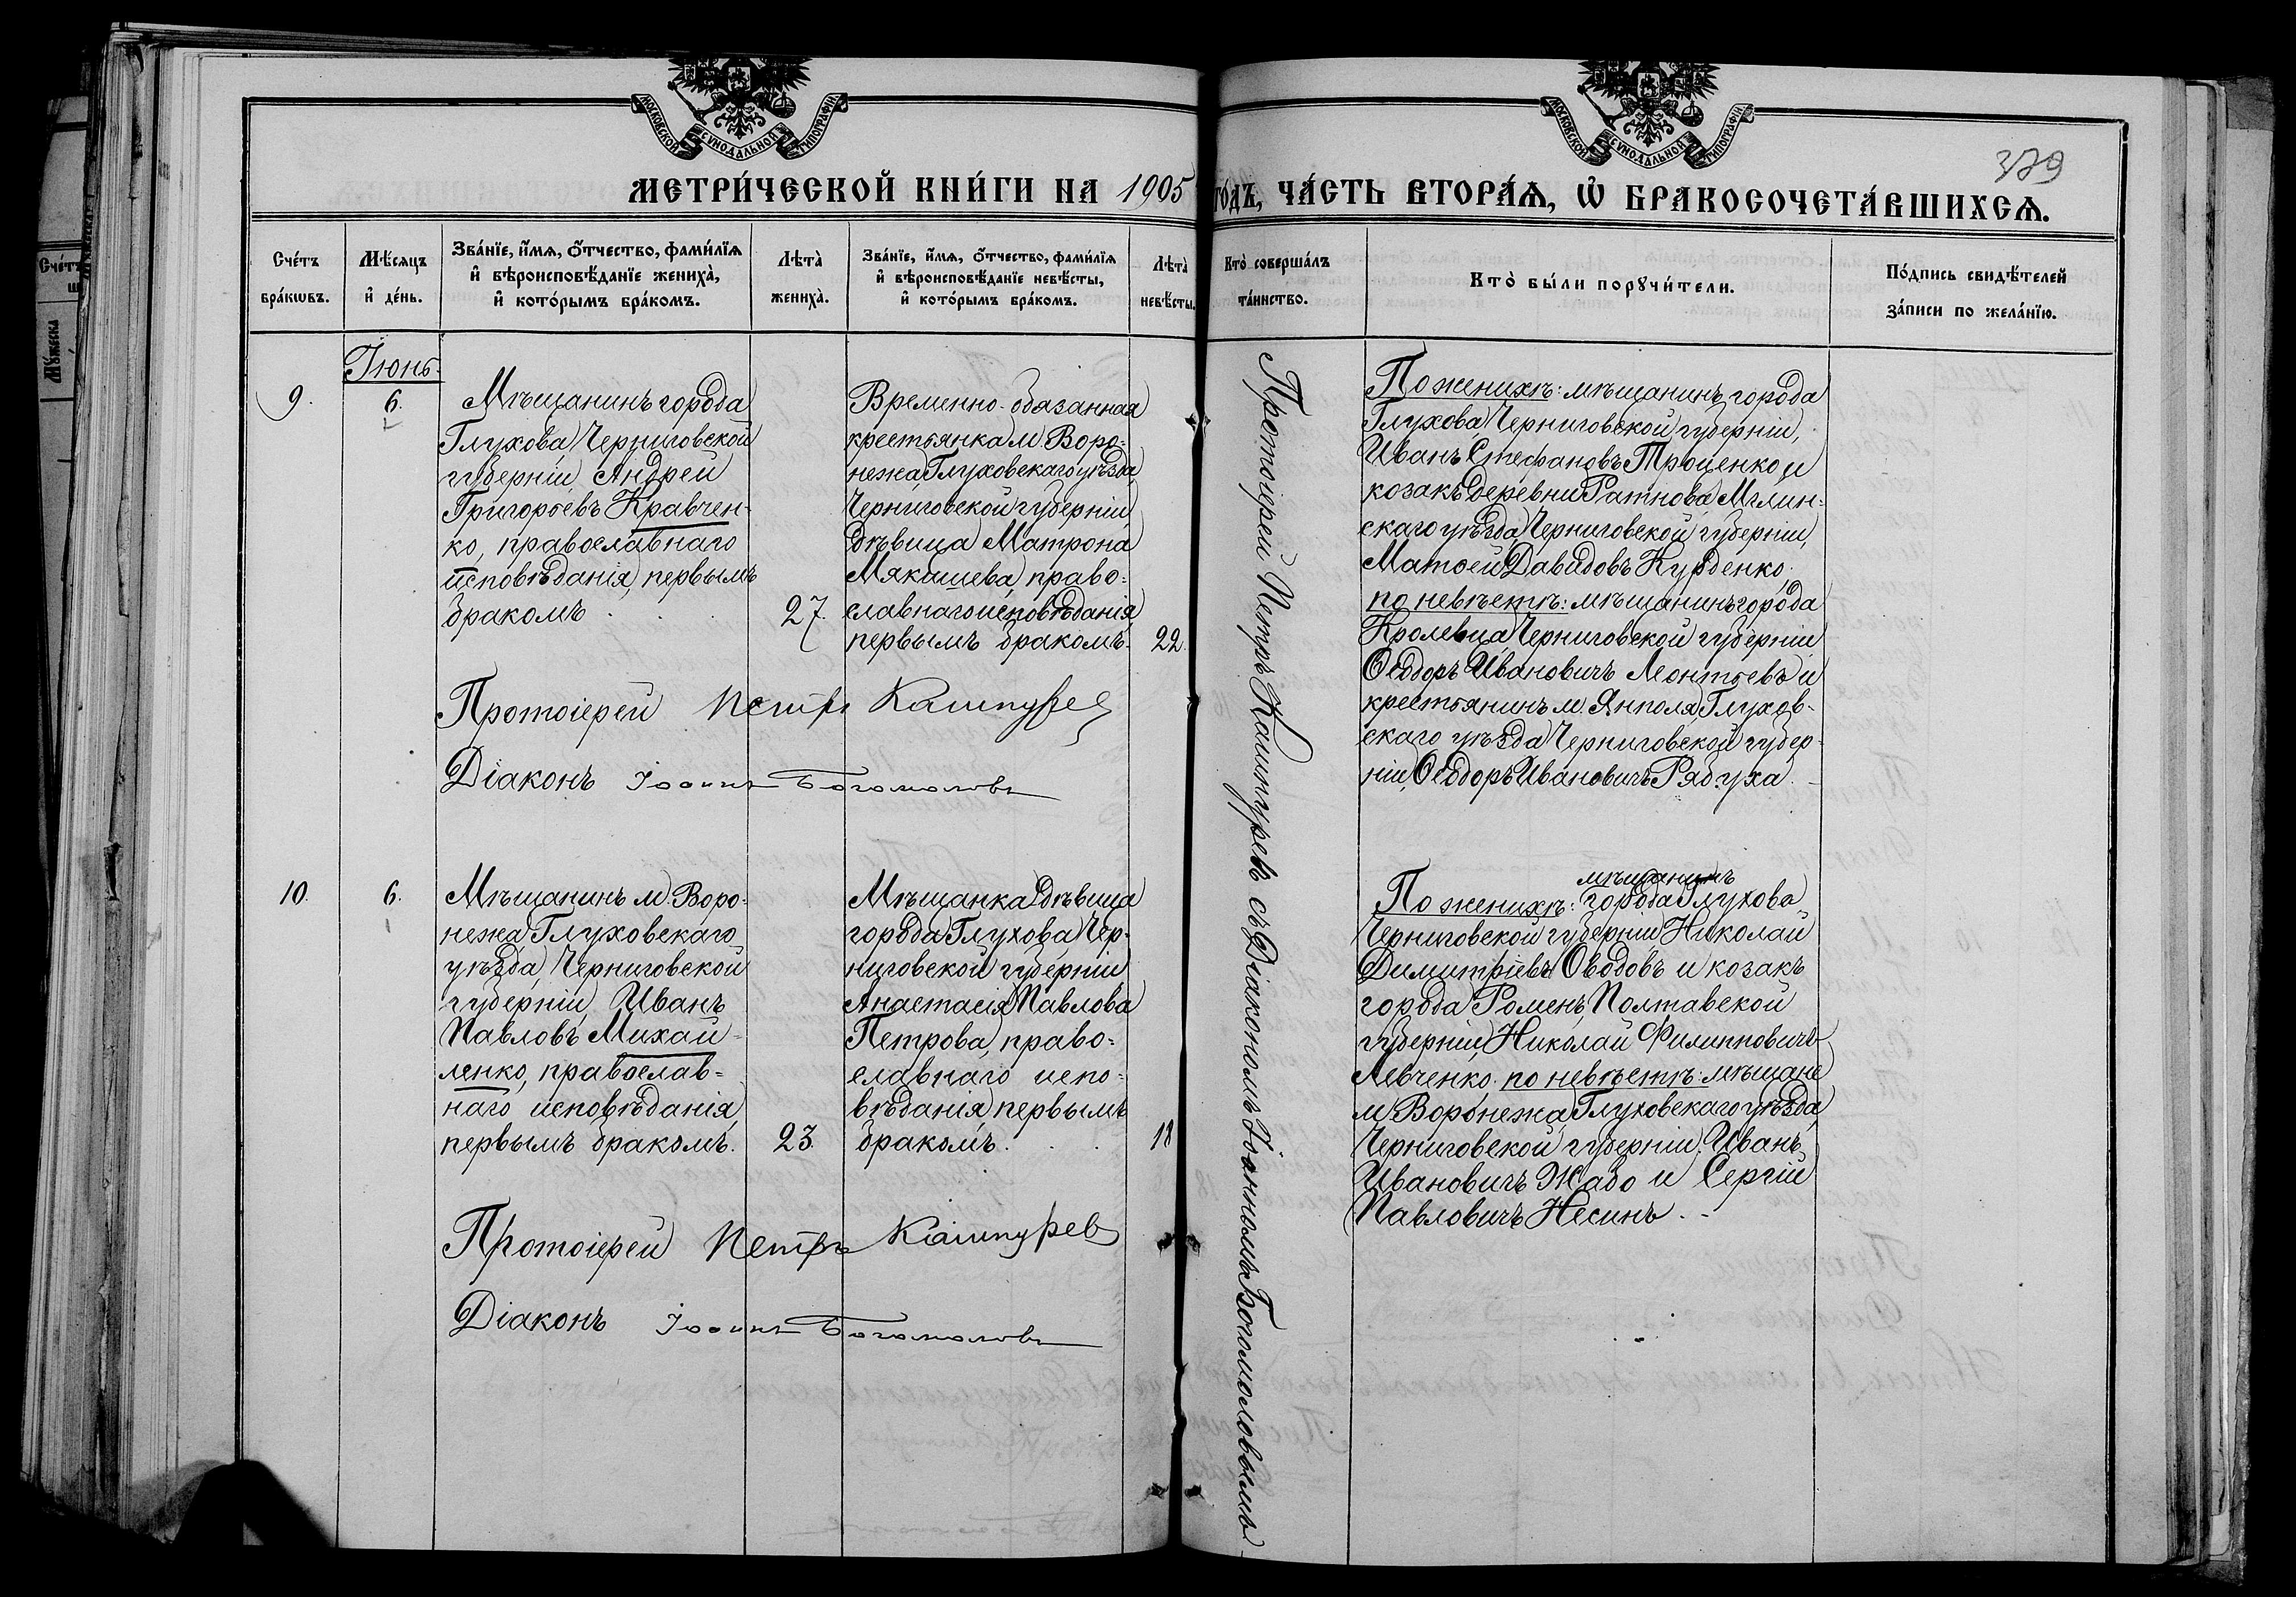 МОСКОВСКОЙ СУНОДАЛЬНОЙ ТИПОГРАФІИ
МОСКОВСКОЙ СУНОДАЛЬНОЙ ТИПОГРАФІИ
379
МЕТРИ́ЧЕСКОЙ КНИ́ГИ НА 1905 ГО́ДЪ, ЧА́СТЬ ВТОРА́Ѧ, Ѽ БРАКОСОЧЕТА́ВШИХСѦ.
Сче́тъ
бра́кѡвъ.
Мѣ́сяцъ
и҆ де́нь.
Зва́нїе, и҆́мѧ, ѻ҆́тчество, фами́лїѧ
и҆ вѣроисповѣ́данїе жениха̀,
и҆ кото́рымъ бра́комъ.
Лѣта̀
жениха̀.
Зва́нїе, и҆́мѧ, ѻ҆́тчество, фами́лїѧ
и҆ вѣроисповѣ́данїе невѣ́сты,
и҆ кото́рымъ бра́комъ.
Лѣта̀
невѣ́сты.
Кто̀ соверша́лъ
та́инство.
Кто̀ бы́ли порꙋчи́тели.
По́дпись свидѣ́телей
за́писи по жела́нїю.
Іюнь.
9.
6.
Мѣщанинъ города
Глухова Черниговской
губерніи Андрей
Григорьевъ Кравчен-
ко, православнаго
исповѣданія, первымъ
бракомъ
27.
Временно-обязанная
крестьянка м. Воро-
нежа Глуховскаго уѣзда
Черниговской губерніи,
дѣвица Матрона
Мякашева, право-
славнаго исповѣданія,
первымъ бракомъ.
22.
Протоіерей Петръ Кашпуревъ съ Діакономъ Іоанномъ Богомоловымъ
По женихѣ: мѣщанинъ города
Глухова Черниговской губерніи,
Иванъ Стефановъ Троценко и
козакъ деревни Ратнова, Мглин-
скаго уѣзда Черниговской губерніи,
Матѳей Давидовъ Курденко;
по невѣстѣ: мѣщанинъ города
Кролевца, Черниговской губерніи
Ѳеодоръ Ивановичъ Леонтьевъ и
крестьянинъ м. Янполя Глухов-
скаго уѣзда Черниговской губер-
ніи, Ѳеодоръ Ивановичъ Рябуха.
Протоіерей Петръ Кашпуревъ
Діаконъ Іоаннъ Богомоловъ
10.
6.
Мѣщанинъ м. Воро-
нежа Глуховскаго
уѣзда, Черниговской
губерніи, Иванъ
Павловъ Михай-
ленко, православ-
наго исповѣданія,
первымъ бракомъ.
23.
Мѣщанка дѣвица
города Глухова Чер-
ниговской губерніи
Анастасія Павлова
Петрова, право-
славнаго испо-
вѣданія, первымъ
бракомъ.
18
По женихѣ: мѣщанинъ города Глухова
Черниговской губерніи Николай
Димитріевъ Оводовъ и козакъ
города Роменъ, Полтавской
губерніи, Николай Филипповичъ
Левченко; по невѣстѣ: мѣщане
м. Воронежа, Глуховскаго уѣзда,
Черниговской губерніи, Иванъ
Ивановичъ Жабо и Сергій
Павловичъ Несинъ.
Протоіерей Петръ Кашпуревъ
Діаконъ Іоаннъ Богомоловъ